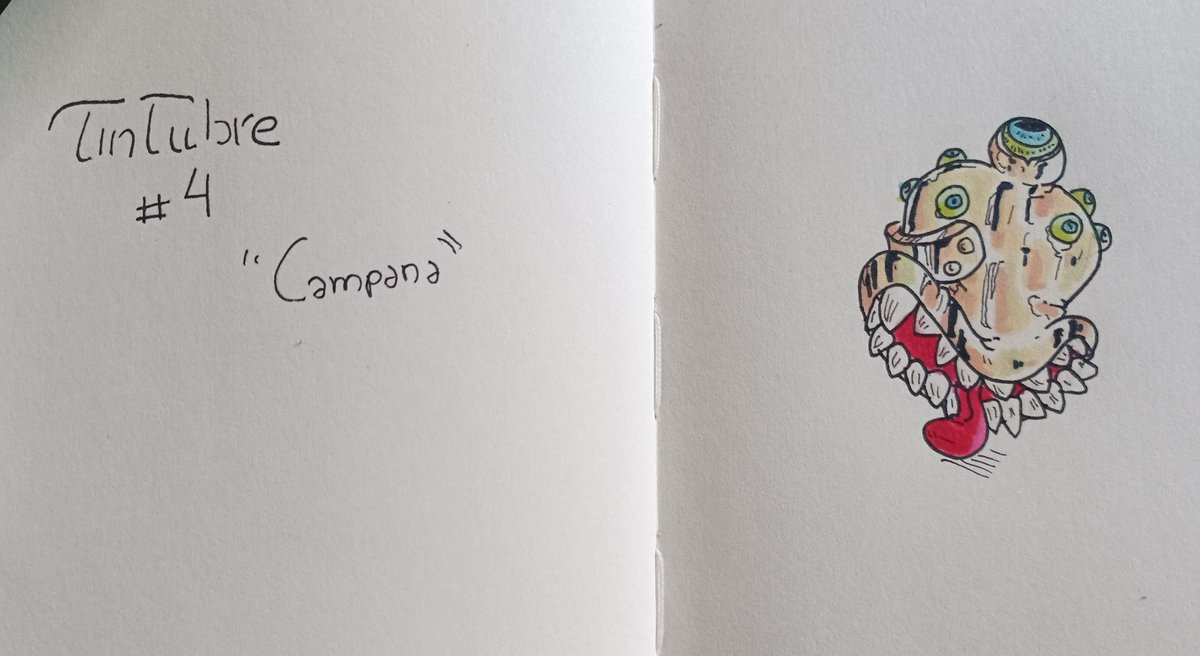 TinTubre
#4
"Campana"